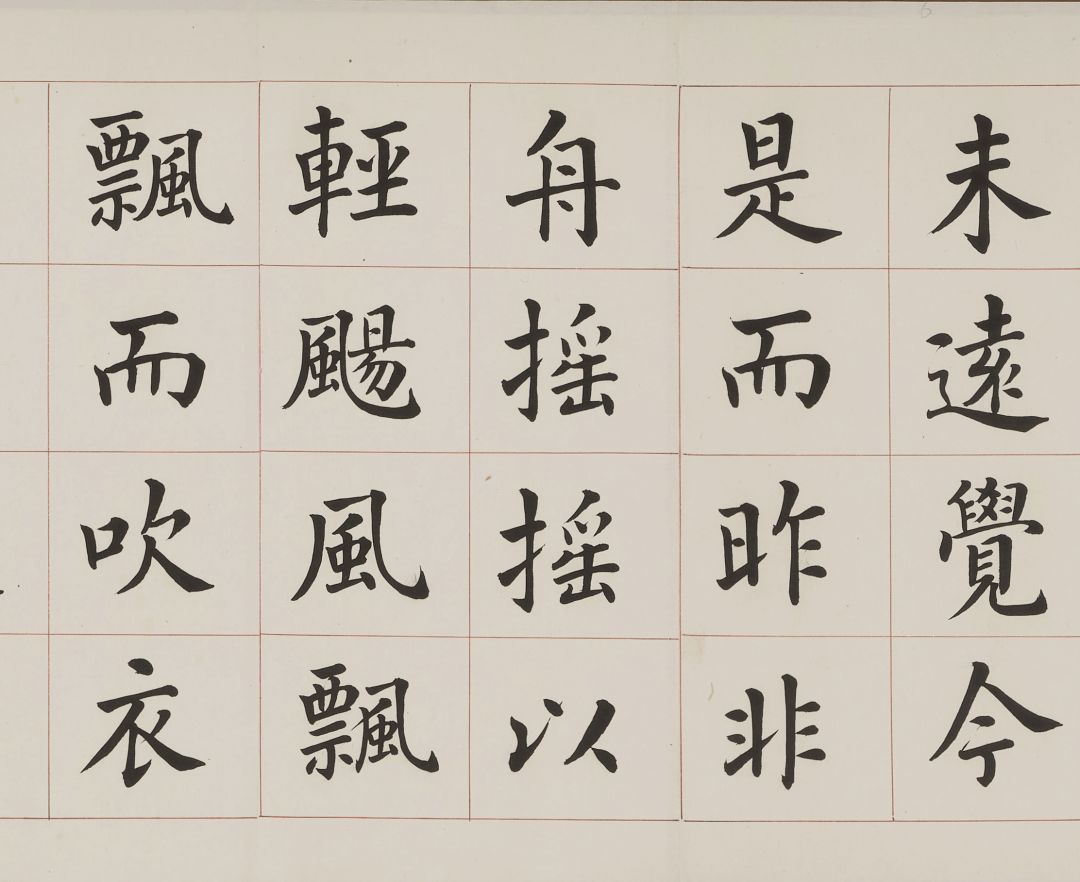 未遠覺今
是而昨非
舟摇摇以
輕颺風飄
飄而吹衣